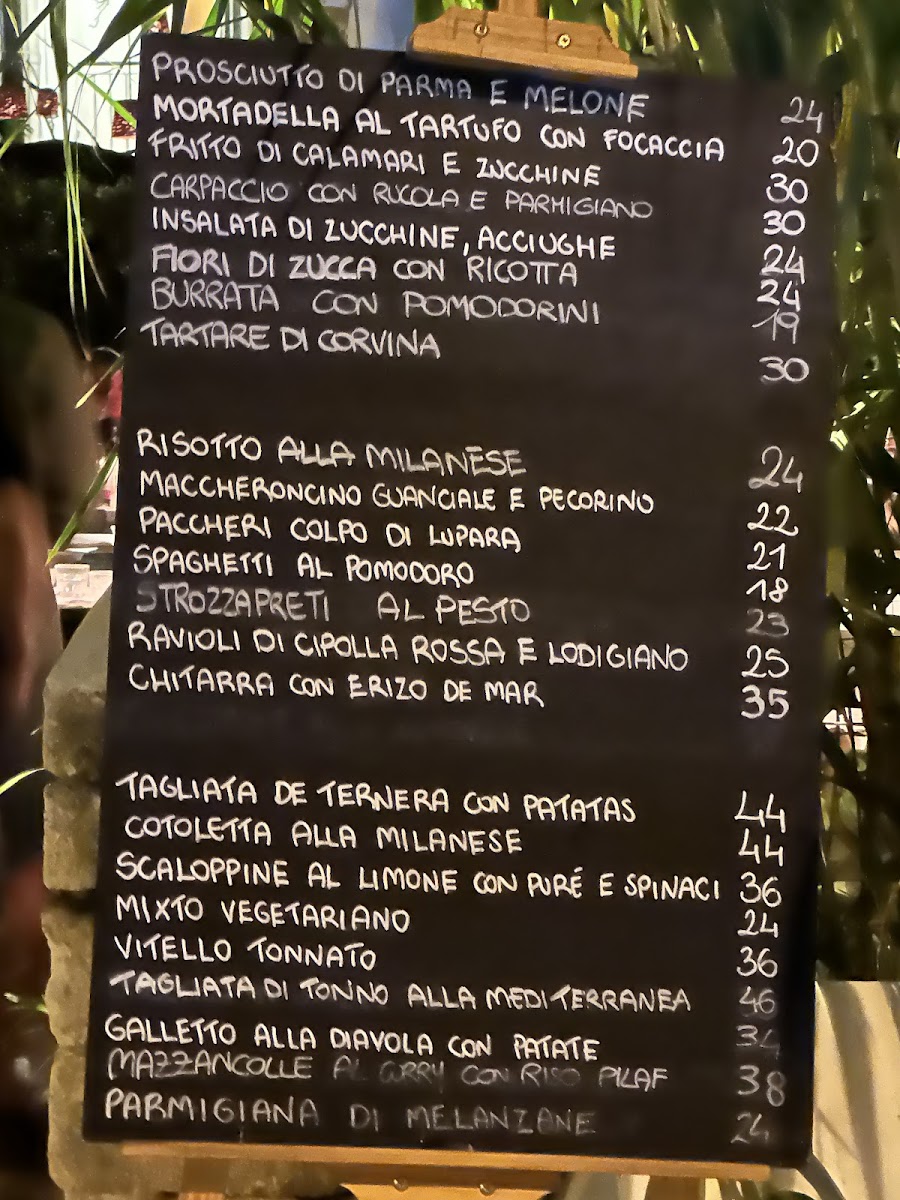 PROSCIUTTO DI PARMA E MELONE 24
MORTADELLA AL TARTUFO CON FOCACCIA 20
FRITTO DI CALAMARI E ZUCCHINE 30
CARPACCIO CON RUCOLA E PARMIGIANO 30
INSALATA DI ZUCCHINE, ACCIUGHE 24
FIORI DI ZUCCA CON RICOTTA 24
BURRATA CON POMODORINI 19
TARTARE DI CORVINA 30
RISOTTO ALLA MILANESE 24
MACCHERONCINO GUANCIALE E PECORINO 22
PACCHERI COLPO DI LUPARA 21
SPAGHETTI AL POMODORO 18
STROZZAPRETI AL PESTO 23
RAVIOLI DI CIPOLLA ROSSA E LODIGIANO 25
CHITARRA CON ERIZO DE MAR 35
TAGLIATA DE TERNERA CON PATATAS 44
COTOLETTA ALLA MILANESE 44
SCALOPPINE AL LIMONE CON PURÉ E SPINACI 36
MIXTO VEGETARIANO 24
VITELLO TONNATO 36
TAGLIATA DI TONNO ALLA MEDITERRANEA 46
GALLETTO ALLA DIAVOLA CON PATATE
MAZZANCOLLE AL CURRY CON RISO PILAF 38
PARMIGIANA DI MELANZANE 24